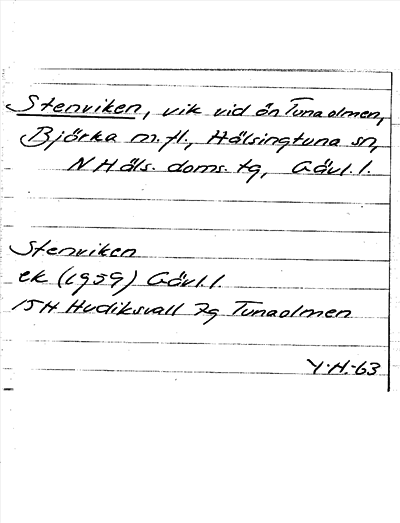 Stenviken, vik vid ön Tunaolmen,
Björka m.fl., Hälsingtuna sn,
N Häls. doms. tg, Gävl.l.
Stenviken
ek (1959) Gävl.l
15H Hudiksvall 7g Tunaolmen
Y.H.-63